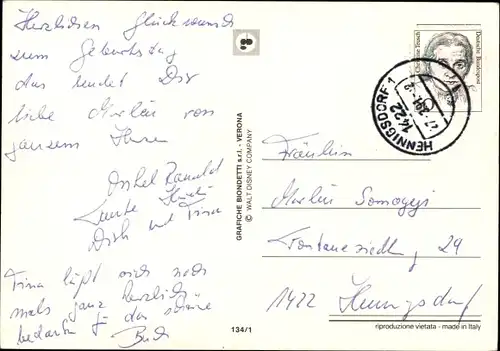 Herzlichen Glückwunsch
zum Geburtstag
das sendet Dir
liebe Merlis von
ganzem Herzen
Onkel Ronald
Tante
Dirk und Tina
Tina läßt sich noch
mals ganz herzlich
bedanken f. das schöne
Buch
GRAFICHE BIONDETTI s.r.l. - VERONA
© WALT DISNEY COMPANY
134/1
Deutsche Bundespost
HENNIGSDORF 1
1422
Fräulein
Merlis Somogyi
Fontanesiedlg. 29
1422 Hennigsdorf
riproduzione vietata - made in Italy